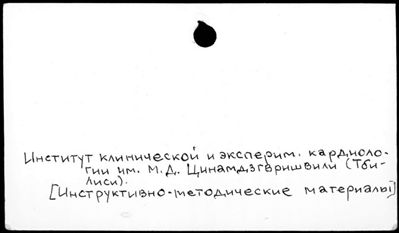 Институт клинической и эксперим. кардиоло-
гии им. М.Д. Цинамдзгвришвили (Тби-
лиси).
[Инструктивно-методические материалы]